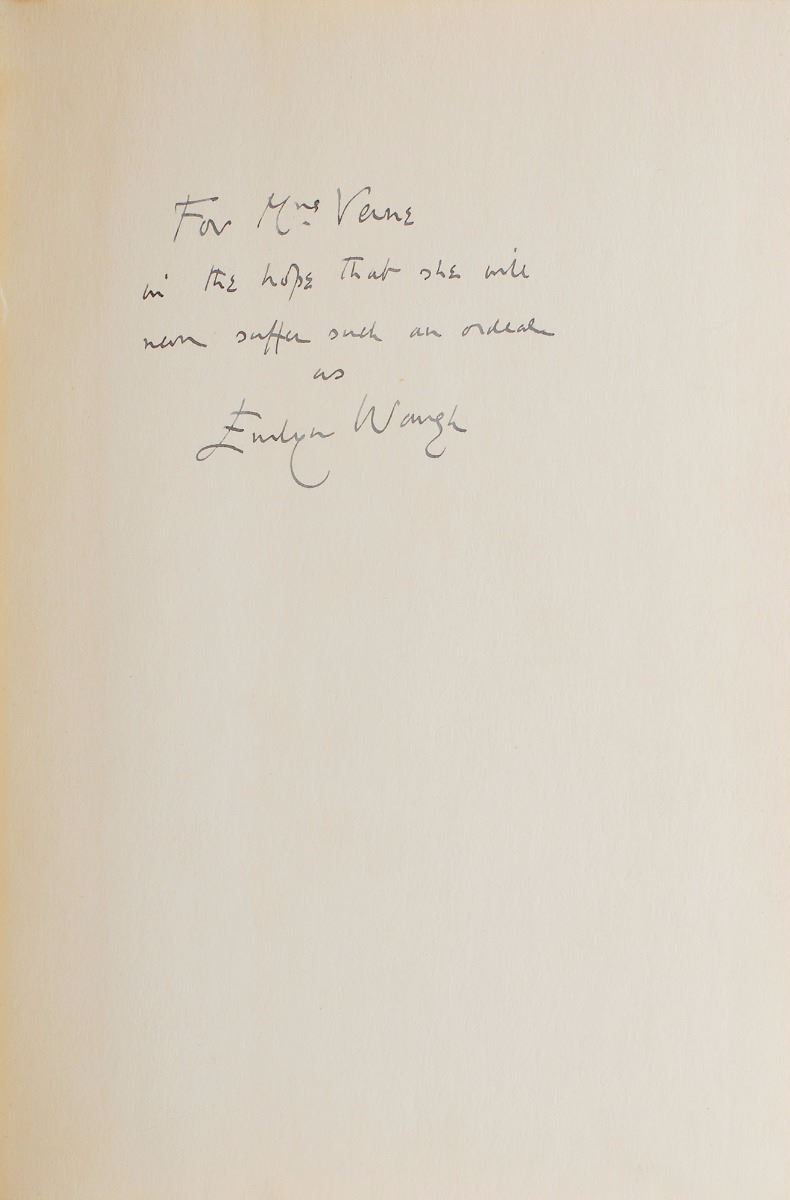 For Mrs Verne
in the hope that she will
never suffer such an ordeal
as
Evelyn Waugh